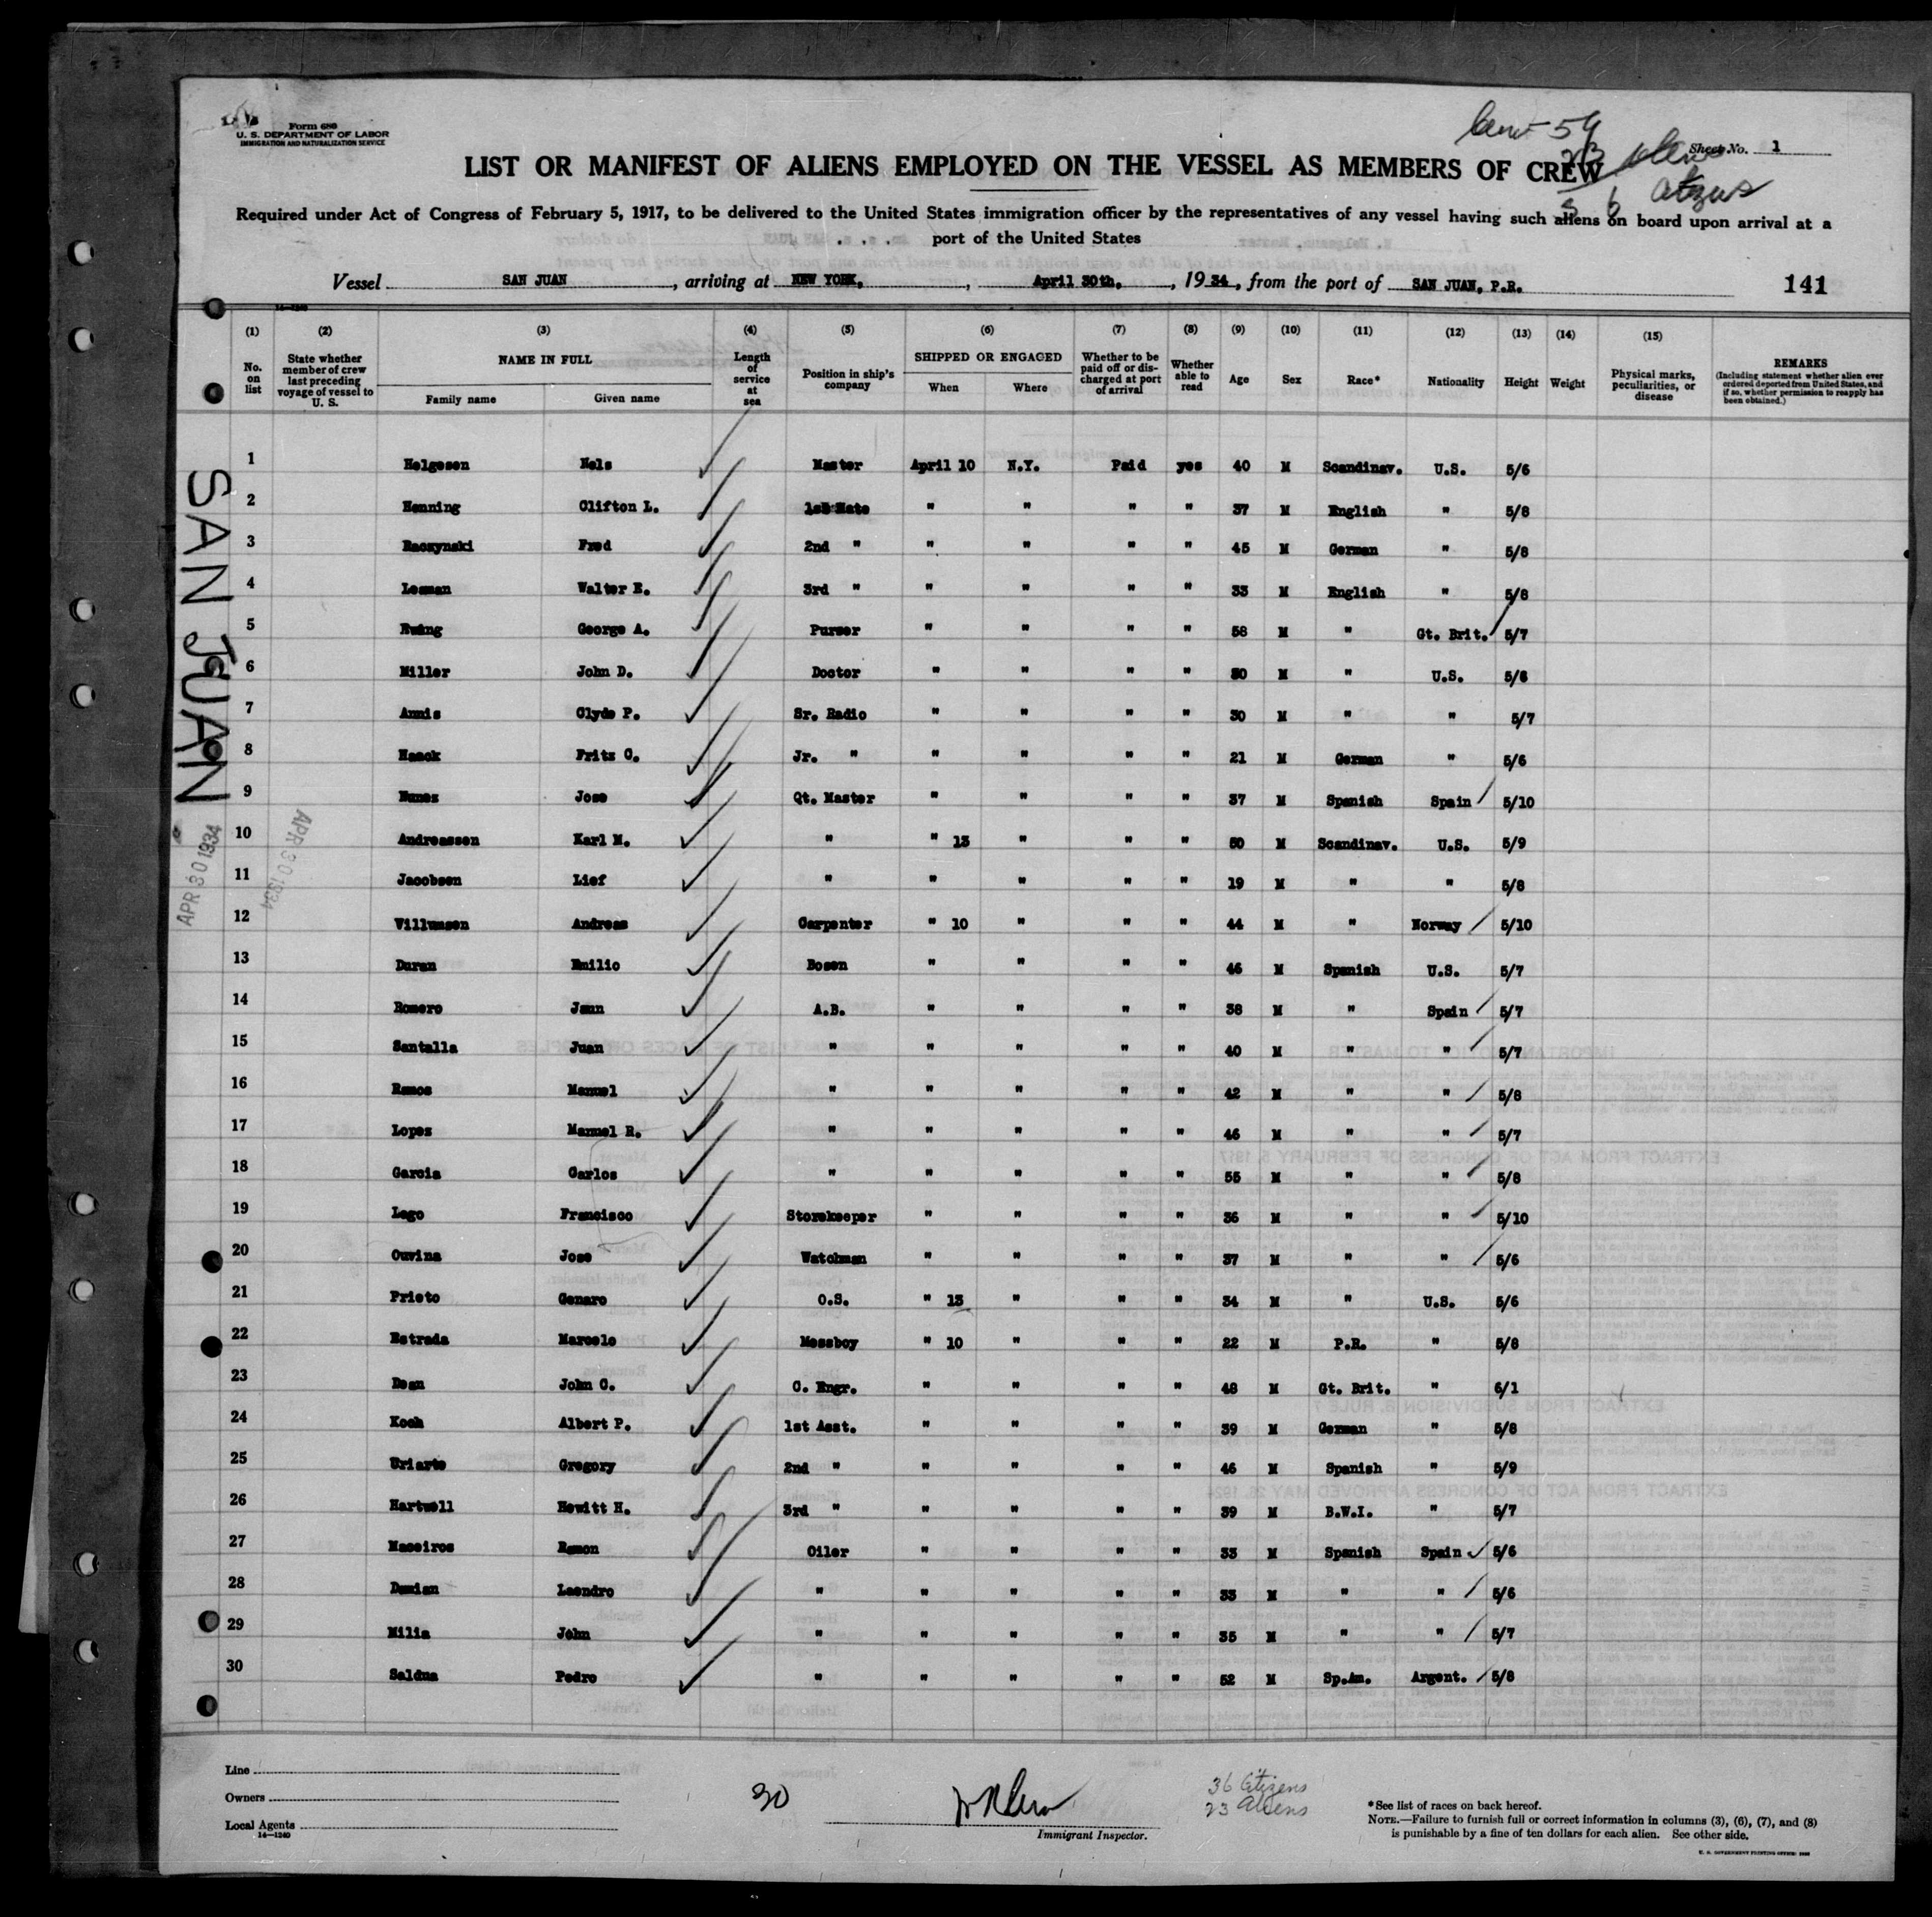 Form 680
U. S. DEPARTMENT OF LABOR
IMMIGRATION AND NATURALIZATION SERVICE
Sheet No. 1
LIST OR MANIFEST OF ALIENS EMPLOYED ON THE VESSEL AS MEMBERS OF CREW
Required under Act of Congress of February 5, 1917, to be delivered to the United States immigration officer by the representatives of any vessel having such aliens on board upon arrival at a
port of the United States
Vessel SAN JUAN, arriving at NEW YORK, April 30th, 1934, from the port of SAN JUAN, P.R. 141
14-1240
(1) (2) (3) (4) (5) (6) (7) (8) (9) (10) (11) (12) (13) (14) (15)
No. on list State whether member of crew last preceding voyage of vessel to U. S. NAME IN FULL Family name Given name Length of service at sea Position in ship's company SHIPPED OR ENGAGED When Where Whether to be paid off or discharged at port of arrival Whether able to read Age Sex Race* Nationality Height Weight Physical marks, peculiarities, or disease REMARKS (Including statement whether alien ever ordered deported from United States, and if so, whether permission to reapply has been obtained.)
1 Helgesen Nels Master April 10 N.Y. Paid yes 40 M Scandinav. U.S. 5/6
2 Henning Clifton L. 1st Mate " " " " 37 M English " 5/8
3 Raczynski Fred 2nd " " " " " 45 M German " 5/8
4 Lesman Walter E. 3rd " " " " " 33 M English " 5/8
5 Ewing George A. Purser " " " " 58 M " Gt. Brit. 5/7
6 Miller John D. Doctor " " " " 50 M " U.S. 5/6
7 Annis Clyde P. Sr. Radio " " " " 30 M " " 5/7
8 Haack Fritz C. Jr. " " " " " 21 M German " 5/6
9 Nunez Jose Qt. Master " " " " 37 M Spanish Spain 5/10
10 Andreassen Karl M. " " 13 " " " 50 M Scandinav. U.S. 5/9
11 Jacobsen Lief " " " " " 19 M " " 5/8
12 Villumsen Andreas Carpenter " 10 " " " 44 M " Norway 5/10
13 Duran Emilio Bosen " " " " 46 M Spanish U.S. 5/7
14 Romero Jaun A.B. " " " " 38 M " Spain 5/7
15 Santalla Juan " " " " " 40 M " " 5/7
16 Ramos Manuel " " " " " 42 M " " 5/8
17 Lopez Manuel R. " " " " " 46 M " " 5/7
18 Garcia Carlos " " " " " 55 M " " 5/8
19 Lago Francisco Storekeeper " " " " 36 M " " 5/10
20 Ouvina Jose Watchman " " " " 37 M " " 5/6
21 Prieto Genaro O.S. " 13 " " " 34 M " U.S. 5/6
22 Estrada Marcelo Messboy " 10 " " " 22 M P.R. " 5/8
23 Dean John C. C. Engr. " " " " 48 M Gt. Brit. " 6/1
24 Koch Albert P. 1st Asst. " " " " 39 M German " 5/8
25 Uriarte Gregory 2nd " " " " " 46 M Spanish " 5/9
26 Hartwell Hewitt H. 3rd " " " " " 39 M B.W.I. " 5/7
27 Maseiros Ramon Oiler " " " " 33 M Spanish Spain 5/6
28 Damian Leandro " " " " " 33 M " " 5/6
29 Milia John " " " " " 35 M " " 5/7
30 Saldna Pedro " " " " " 52 M Sp.Am. Argent. 5/8
SAN JUAN
APR 30 1934
APR 30 1934
Line
Owners
Local Agents
14-1240
30
Immigrant Inspector.
36 Citizens
23 Aliens
*See list of races on back hereof.
NOTE.—Failure to furnish full or correct information in columns (3), (6), (7), and (8)
is punishable by a fine of ten dollars for each alien. See other side.